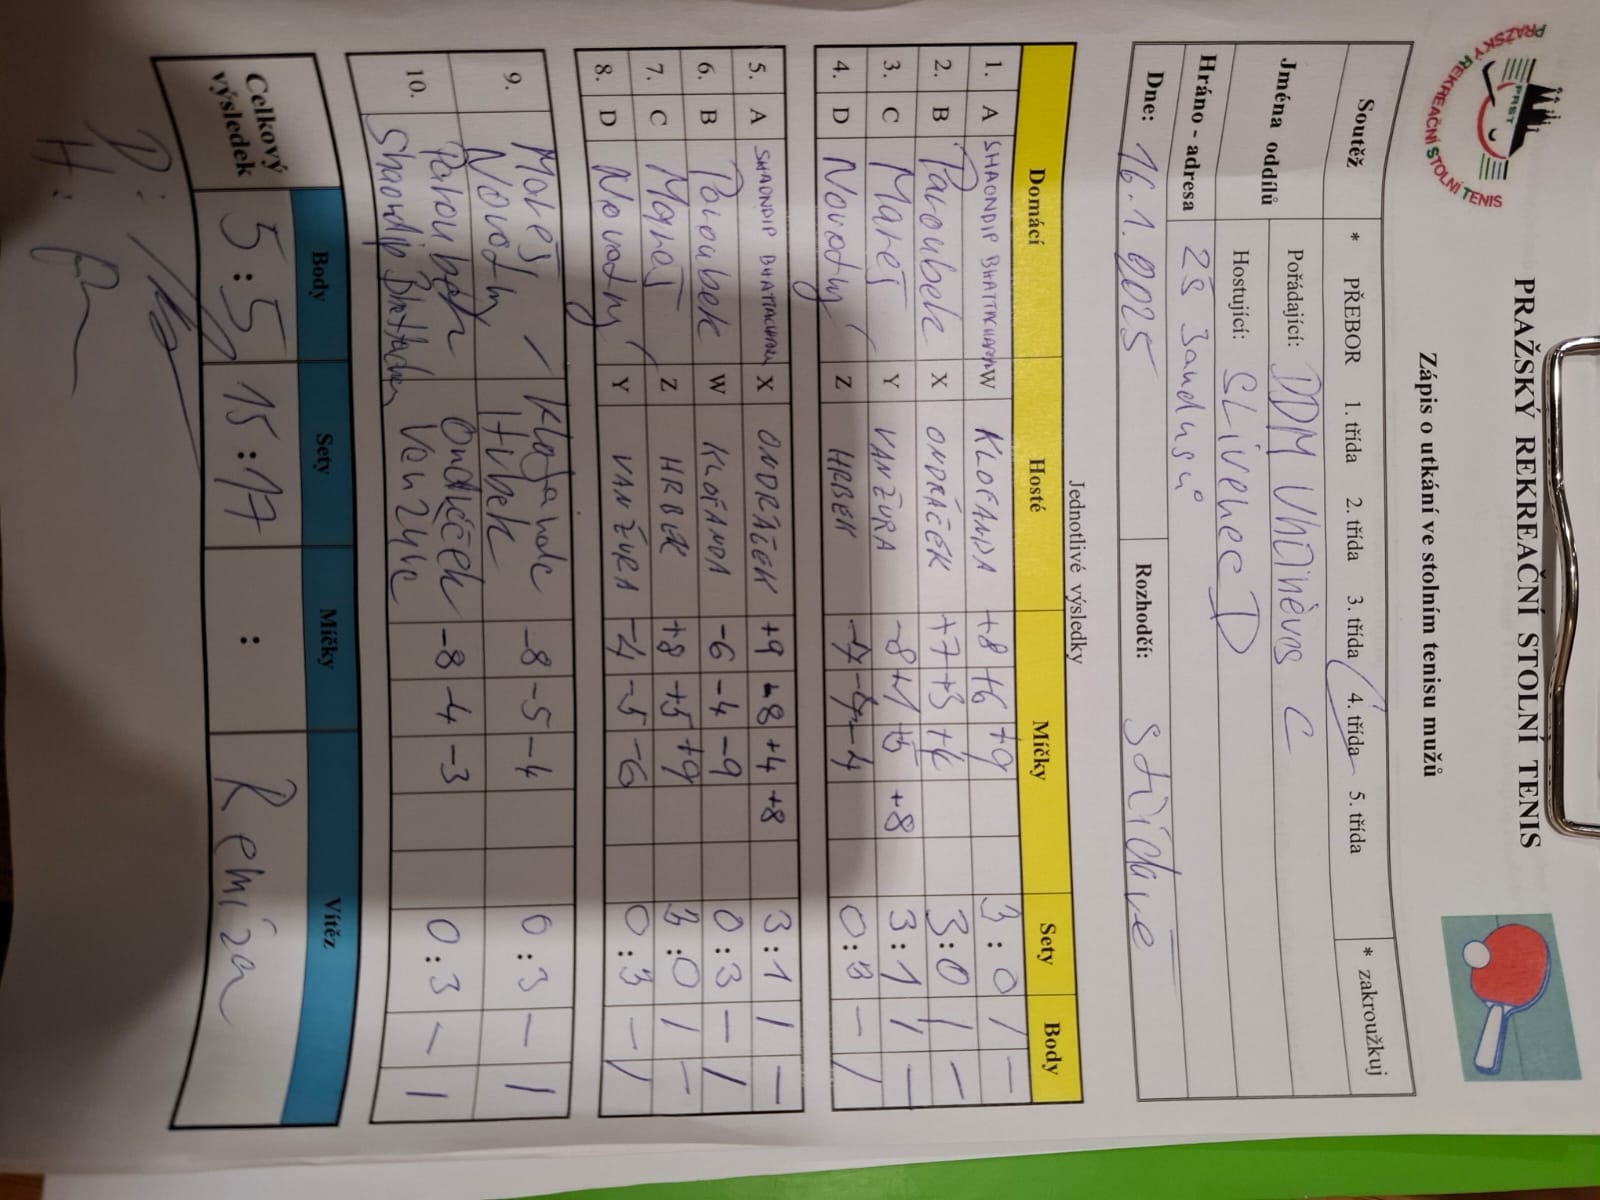 PRAŽSKÝ REKREAČNÍ STOLNÍ TENIS
PRST
PRAŽSKÝ REKREAČNÍ STOLNÍ TENIS
Zápis o utkání ve stolním tenisu mužů
Soutěž * PŘEBOR 1. třída 2. třída 3. třída 4. třída 5. třída * zakroužkuj
Jména oddílů Pořádající: DDM Uhříněves C
Hostující: SLivenec D
Hráno - adresa ZŠ
Dne: 16.1.2025 Rozhodčí: střídavě
Jednotlivé výsledky
Domácí Hosté Míčky Sety Body
1. A SHAONDIP W KLOFANDA +8 +6 +9 3:0 1 -
2. B Paroubek X ONDRÁČEK +7 +3 3:0 1 -
3. C Mareš Y VANŽURA -8 +8 3:1 1 -
4. D Novotný Z HRBEK -4 0:3 - 1
5. A SHAONDIP X ONDRÁČEK +9 -8 +4 +8 3:1 1 -
6. B Paroubek W KLOFANDA -6 -4 -9 0:3 - 1
7. C Mareš Z HRBEK +8 +5 +9 3:0 1 -
8. D Novotný Y VANŽURA -4 -5 -6 0:3 - 1
9. Mareš / Klofanda
Novotný Hrbek -8 -5 -4 0:3 - 1
10. Paroubek Ondráček
Shaondip -8 -4 -3 0:3 - 1
Body Sety Míčky Vítěz
Celkový výsledek 5:5 15:17 : Remíza
D:
H: